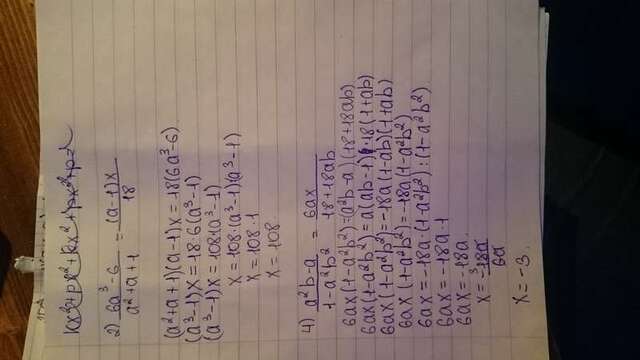 2) 6a³-6 / a²+a+1 = (a-1)x / 18
(a²+a+1)(a-1)x=18(6a³-6)
(a³-1)x=18·6(a³-1)
(a³-1)x=108(a³-1)
x=108·(a³-1)(a³-1)
x=108·1
x=108
4) a²b-a / 1-a²b² = 6ax / 18+18ab
6ax(1-a²b²)=(a²b-a)(18+18ab)
6ax(1-a²b²)=a(ab-1)·18(1+ab)
6ax(1-a²b²)=-18a(1-ab)(1+ab)
6ax(1-a²b²)=-18a(1-a²b²)
6ax=-18a·(1-a²b²):(1-a²b²)
6ax=-18a·1
6ax=-18a
x=-18a / 6a
x=-3.